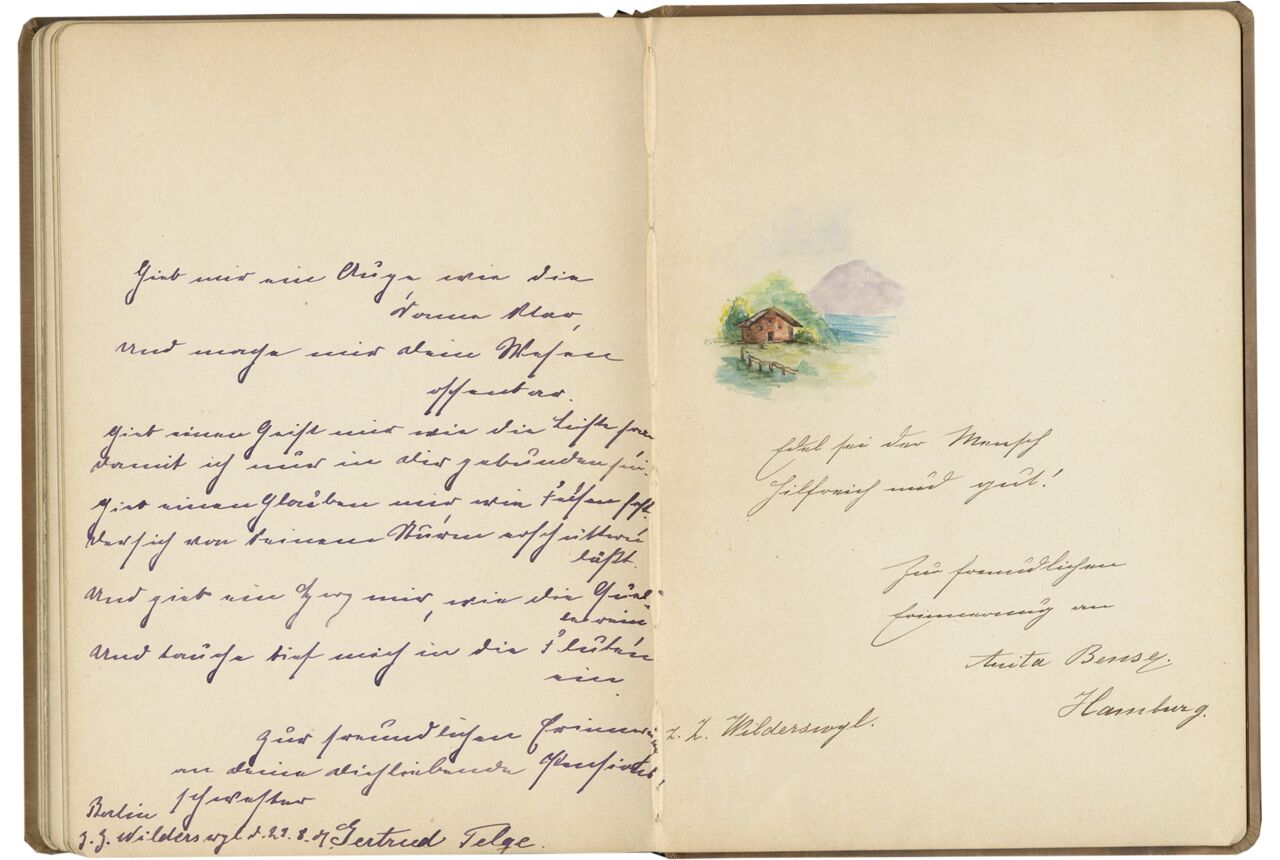 Gieb mir ein Auge wie die
Sonne klar,
Und mache mir dein Wesen
offenbar.
Gieb einen Geist mir wie die Lüfte frei
damit ich nur in dir gebunden sei.
Gieb einen Glauben mir wie Felsen fest
der sich von keinem Sturm erschüttern
läßt.
Und gieb ein Herz mir, wie die Quel-
le rein
Und tauche tief mich in die Fluten
ein.
Zur freundlichen Erinnerung
an deine dichliebende Pensions
schwester
Berlin
z. Z. Wilderswyl d. 29. 8. Gertrud Telge.
Edel sei der Mensch
hilfreich und gut!
Zur freundlichen
Erinnerung an
Anita Bensey.
Hamburg.
z. Z. Wilderswyl.